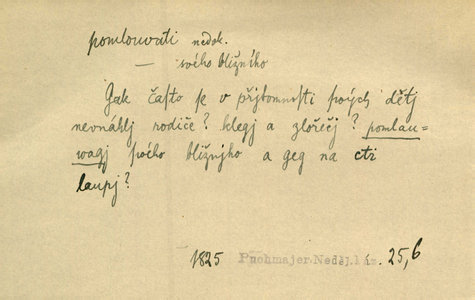 pomlouvati nedok.
— svého bližního
Gak často se v přjtomnosti swých dětj
nevnáhlj rodiče? klegj a zlořečj? pomlau-
wagj swého bližnjho a geg na cti
laupj?
1825 Puchmajer. Neděl. 25,6